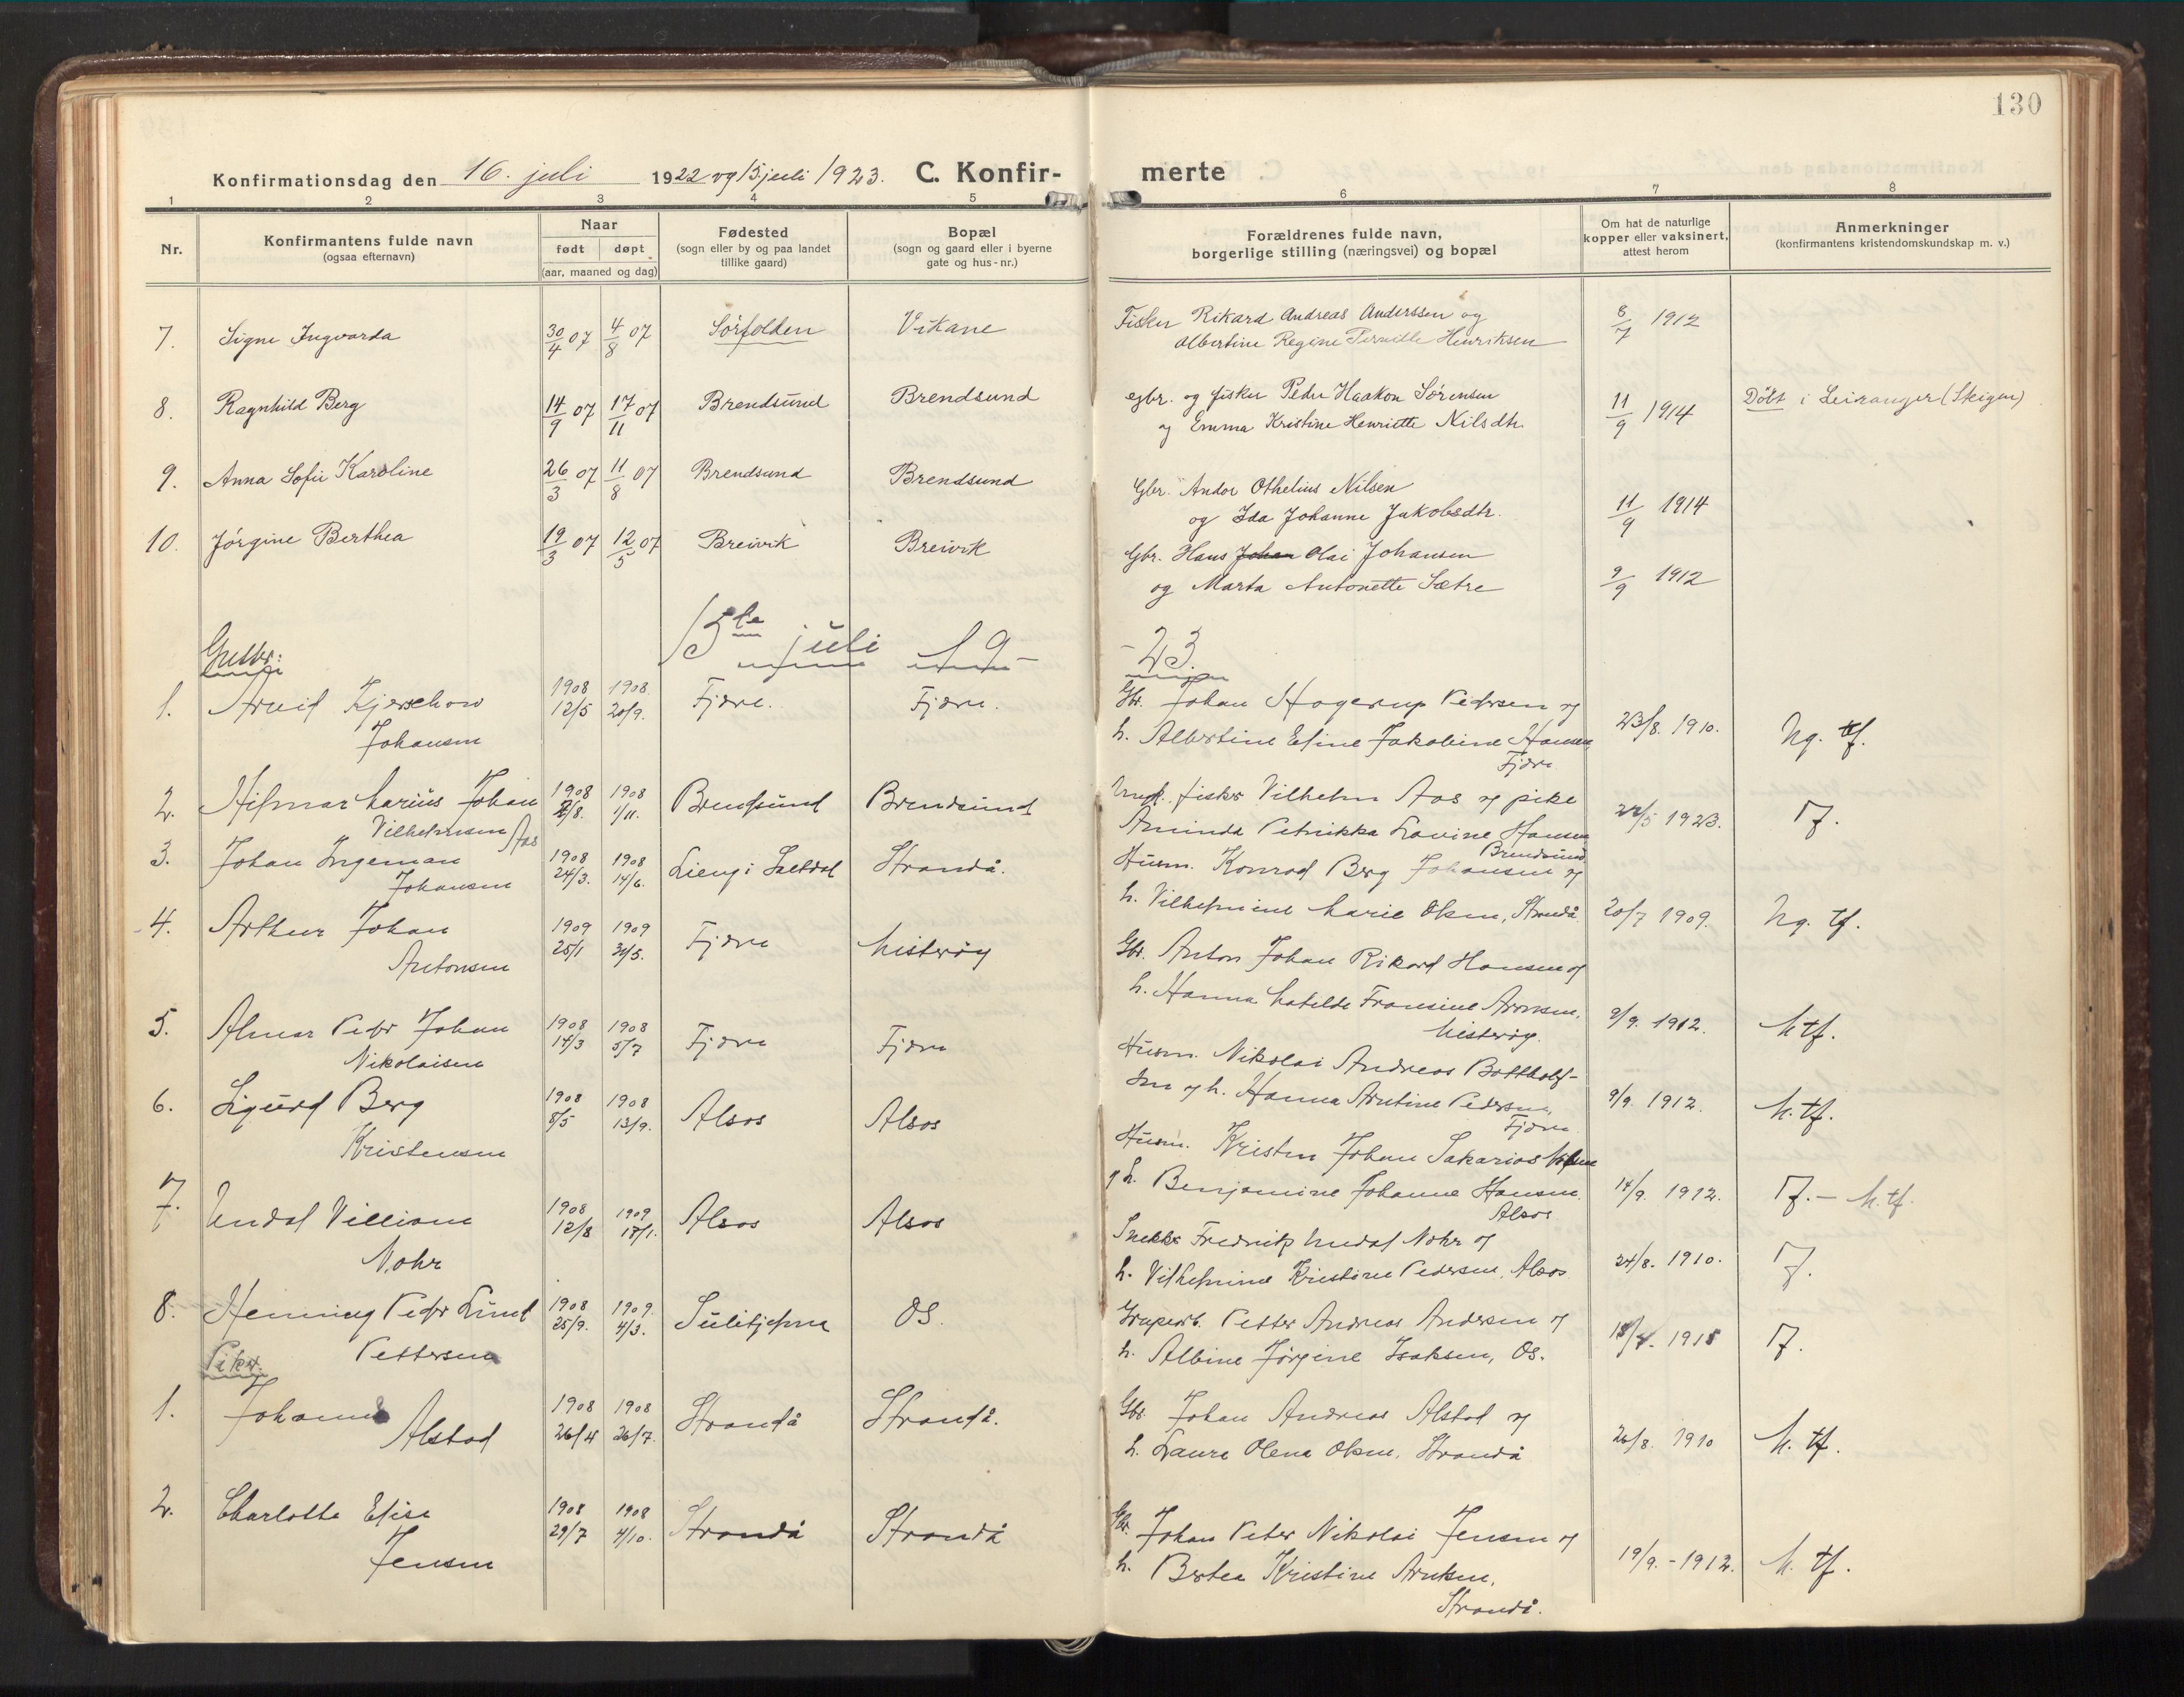 130
Konfirmationsdag den 16. juli 1922 og 15 juli 1923. C. Konfirmerte
1 2 3 4 5 6 7 8
Nr.
Konfirmantens fulde navn
(ogsaa efternavn)
Naar
født døpt
(aar, maaned og dag)
Fødested
(sogn eller by og paa landet
tillike gaard)
Bopæl
(sogn og gaard eller i byerne
gate og hus-nr.)
Forældrenes fulde navn,
borgerlige stilling (næringsvei) og bopæl
Om hat de naturlige
kopper eller vaksinert,
attest herom
Anmerkninger
(konfirmantens kristendomskundskap m. v.)
7. Signe Ingvarda 30/4 07 4/8 07 Sörfolden Vikane Fisker Rikard Andreas Anderssen og 8/7 1912
Albertine Regine Pernille Henriksen
8. Ragnhild Berg 14/9 07 17/11 07 Brendsund Brendsund og fisker Peder Haakon Sörensen 11/9 1914 Döbt i Leiranger (Skigen)
og Emma Kristine Henriette Nilsdtr.
9. Anna Sofie Karoline 26/3 07 11/8 07 Brendsund Brendsund Gbr. Andor Othelius Nilsen 11/9 1914
og Ida Johanne Jakobsdtr.
10. Jørgine Berthea 19/3 07 12/5 07 Breivik Breivik Gbr. Hans Johan Olai Johansen 9/9 1912
og Marta Antonette Sætre
15de juli 19 - 23.
Gutter:
1. Arvid Kjerschow 1908 12/5 1908 20/9. Fjære. Fjære. Gbr. Johan Hagerup Pedersen og 23/8. 1910. Ng. tf.
Johansen h. Albertine Eline Jakobine Hansen
Fjære
2. Hilmar Marius Johan 1908 /8. 1908 1/11. Brendsund Brendsund Ungk. fisker Vilhelm Aas og pike 22/5 1923. T.
Vilhelmsen Aas Aminda Petrikka Lovine Hansen
Brendsund
3. Johan Ingeman 1908 24/3. 1908 14/6. Lieng i Saltdal Strandå. Husm. Konrad Berg Johansen og 20/7 1909. Ng. tf.
Johansen h. Vilhelmine Marie Olsen, Strandå
4. Arthur Johan 1909 25/1 1909 30/5. Fjære Misterøy Gbr. Anton Johan Rikard Hansen og 9/9. 1912. M tf.
Antonsen h. Hanna Matilde Fransine Aronsen,
Misterøy.
5. Almar Peder Johan 1908 14/3 1908 5/7 Fjære Fjære Husm. Nikolai Andreas Bottholf- 9/9. 1912. M. tf.
Nikolaisen sen og h. Hanna Arntine Pedersen,
Fjære
6. Sigurd Berg 1908 8/5 1908 13/9. Alsos Alsos Husm. Kristen Johan Sakarias 14/9. 1912. T. - M. tf.
Kristensen og h. Benjamine Johanne Hansen,
Alsos
7. Undal Villiam 1908 12/8 1909 17/1. Alsos Alsos Snekker Fredrik Undal Nohr og 24/8. 1910. T.
Nohr h. Vilhelmine Kristine Pedersen, Alsos
8. Henning Peder Lund 1908 25/9. 1909. 4/3. Sulitjelma Os. Grubearb. Petter Andreas Andersen og 1915 T.
Pettersen h. Albine Jørgine Isaksen, Os.
Piker.
1. Johanne 1908 26/4 1908 26/7. Strandå Strandå. Gbr. Johan Andreas Alstad og 26/8. 1910 M. tf.
Alstad h. Laura Olena Olsen, Strandå
2. Charlotte Elise 1908 29/7 1908 4/10. Strandå Strandå Gbr. Johan Peter Nikolai Jensen og 19/9. - 1912. M. tf.
Jensen h. Bertea Kristine Arntsen,
Strandå.